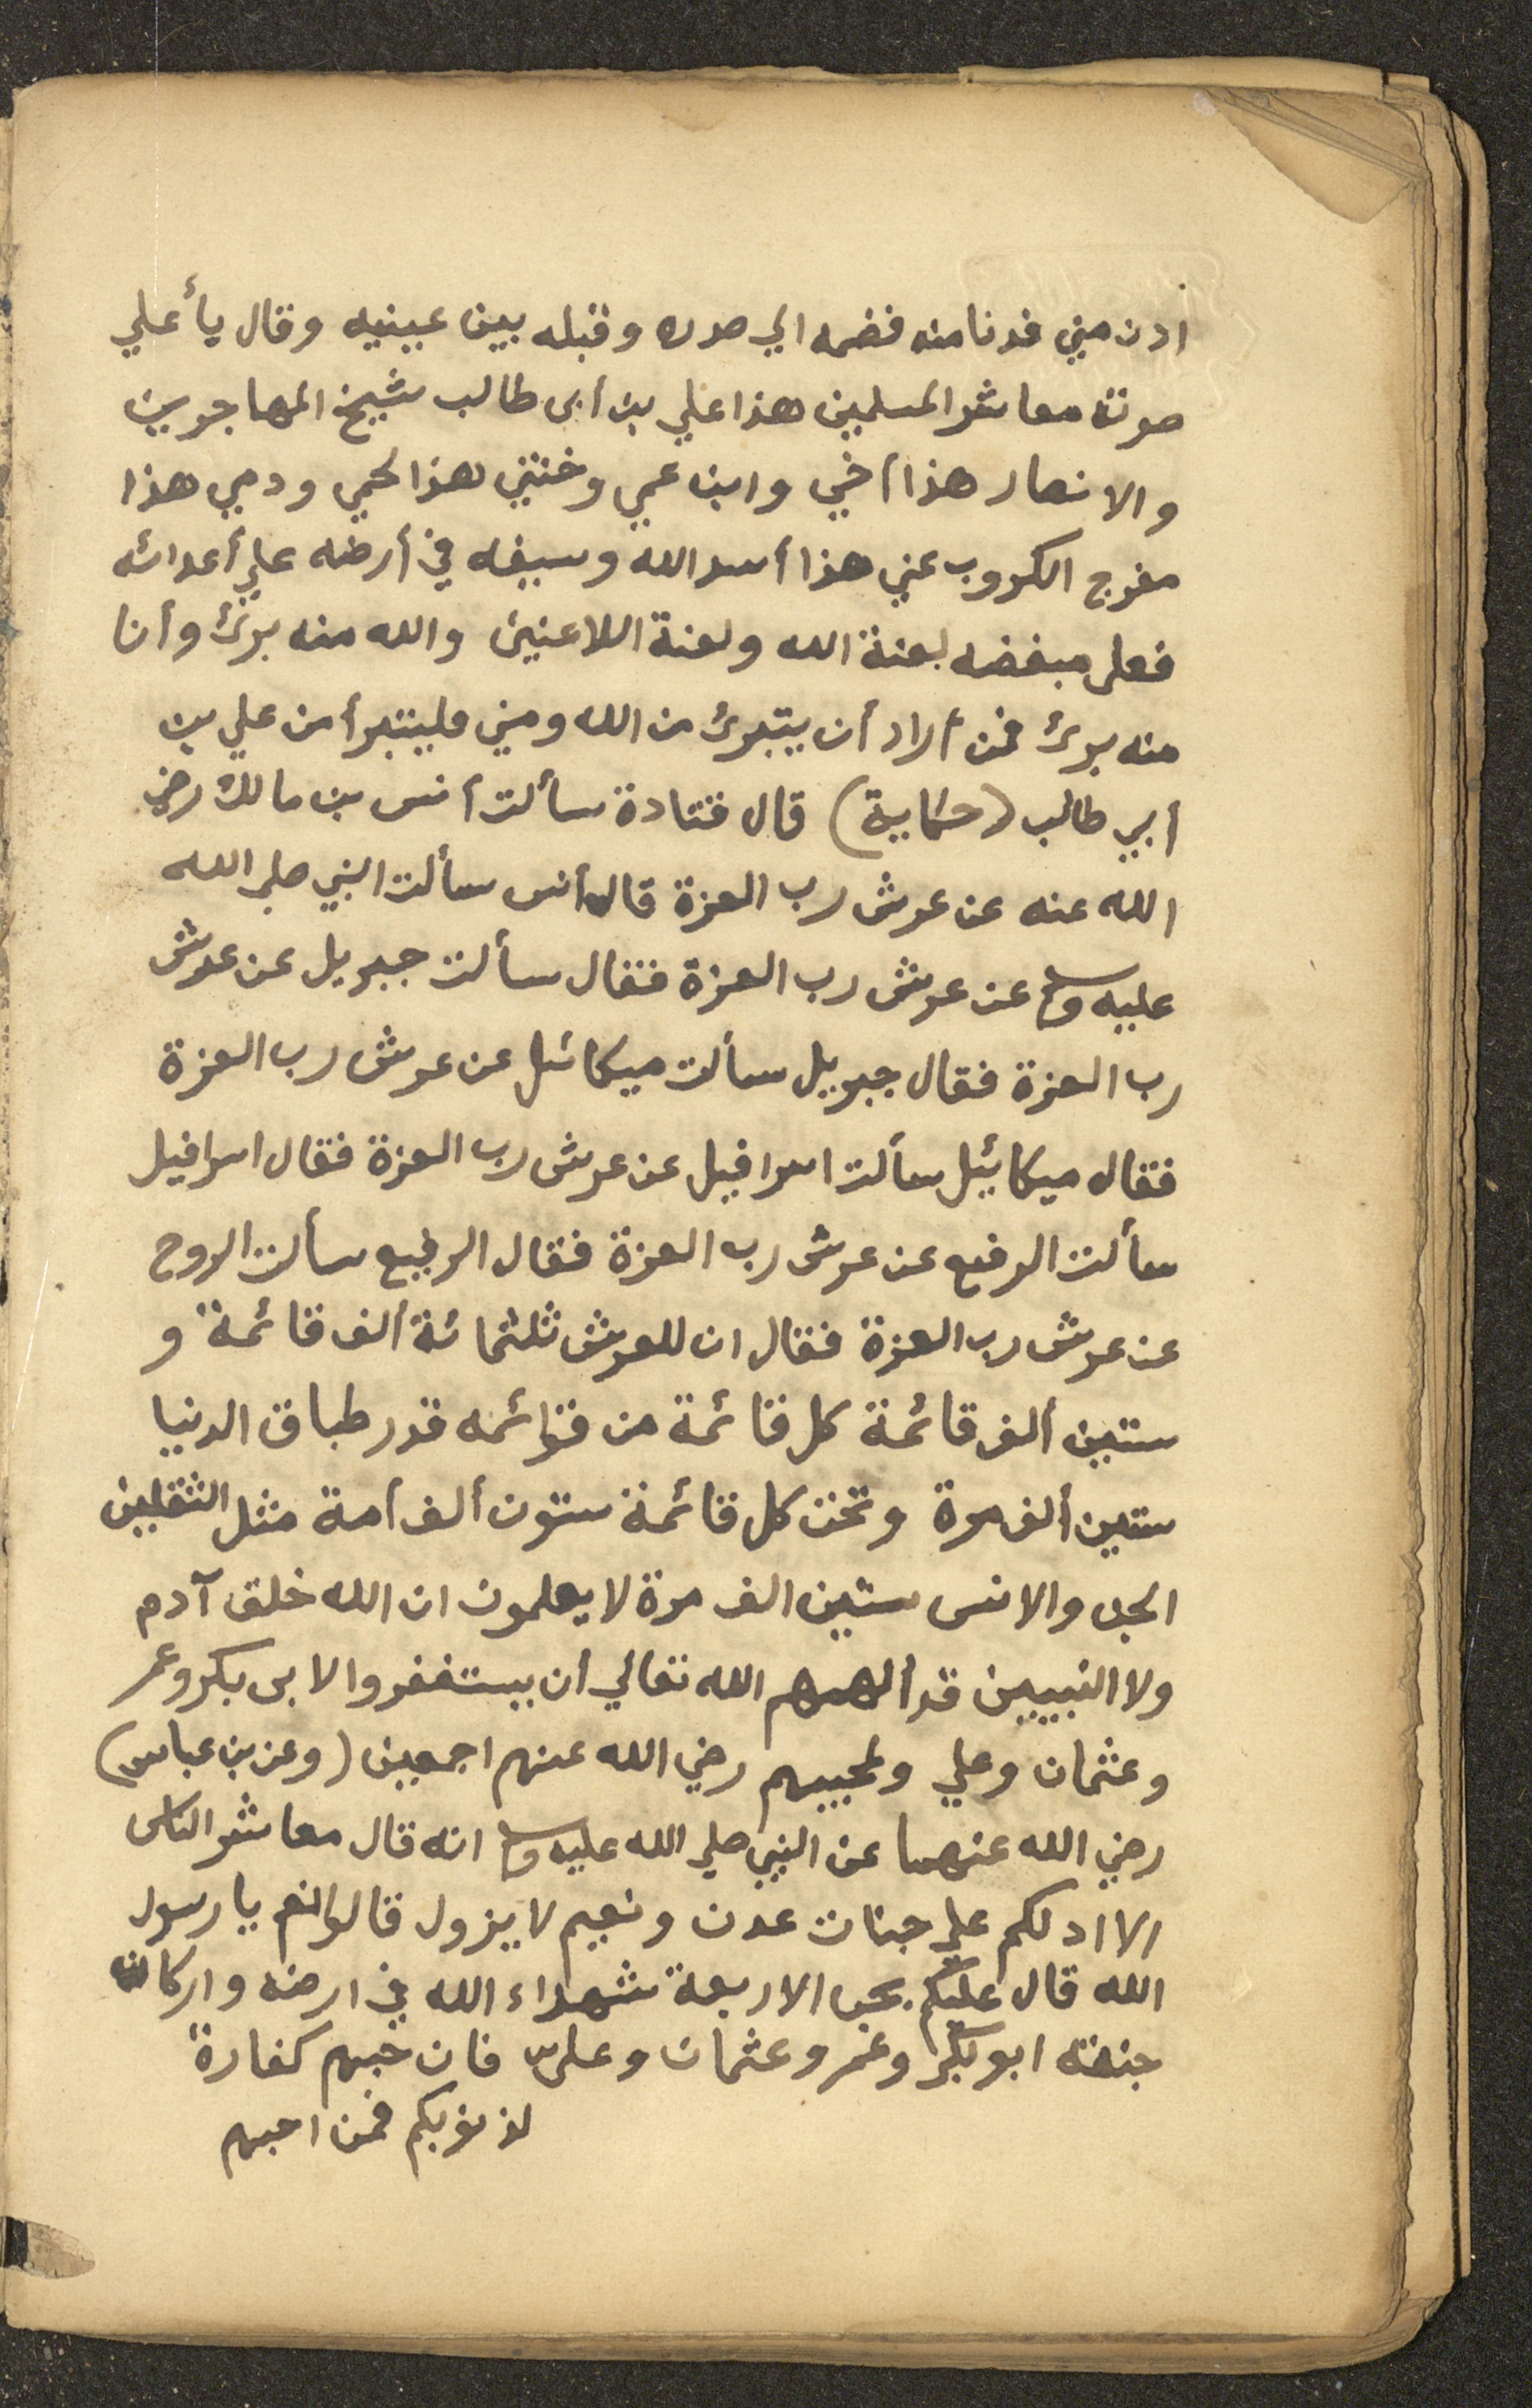 ادن مني فدنا منه فضمه الي صدره وقبله بين عينيه وقال يأ علي
صوته معاشر المسلمين هذا علي بن أبى طالب شيخ المهاجرين
والانصار هذا أخي وابن عمي وختني هذا لحمي ودمي هذا
مفرج الكروب عني هذا أسد الله وسيفه في أرضه علي أعدائه
فعلى مبغضه لعنة الله ولعنة اللاعنين والله منه برئ وأنا
منه برئ فمن أراد أن يتبرئ من الله ومني فليتبرأ من علي بن
أبي طالب (حكاية) قال قتادة سألت أنس بن مالك رضي
الله عنه عن عرش رب العزة قال أنس سألت النبي صلى الله
عليه وسلم عن عرش رب العزة فقال سألت جبريل عن عرش
رب العزة فقال جبريل سألت ميكائيل عن عرش رب العزة
فقال ميكائيل سألت اسرافيل عن عرش رب العزة فقال اسرافيل
سألت الرفيع عن عرش رب العزة فقال الرفيع سألت الروح
عن عرش رب العزة فقال ان للعرش ثلثمائة ألف قائمة و
ستين ألف قائمة كل قائمة من قوائمه قدر طباق الدنيا
ستين ألف مرة وتحت كل قائمة ستون ألف أمة مثل الثقلين
الجن والانس ستين الف مرة لا يعلمون ان الله خلق آدم
ولا النبيين قد ألهمهم الله تعالي أن يستغفروا لابى بكر وعمر
وعثمان وعلي ولمحبيهم رضي الله عنهم اجمعين (وعن بن عباس)
رضي الله عنهما عن النبي صلي الله عليه وسلم انه قال معاشر الناس
الا ادلكم علي جنات عدن ونعيم لا يزول قالوا نعم يا رسول
الله قال عليكم بحب الاربعة شهداء الله في ارضه واركان
جنته ابو بكر وعمر وعثمان وعلى فان حبهم كفارة
لذنوبكم فمن احبهم